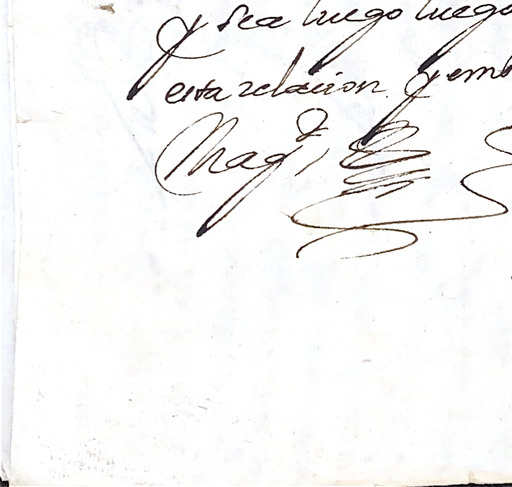 y sea luego luego
esta relacion y emb
Mag.^d